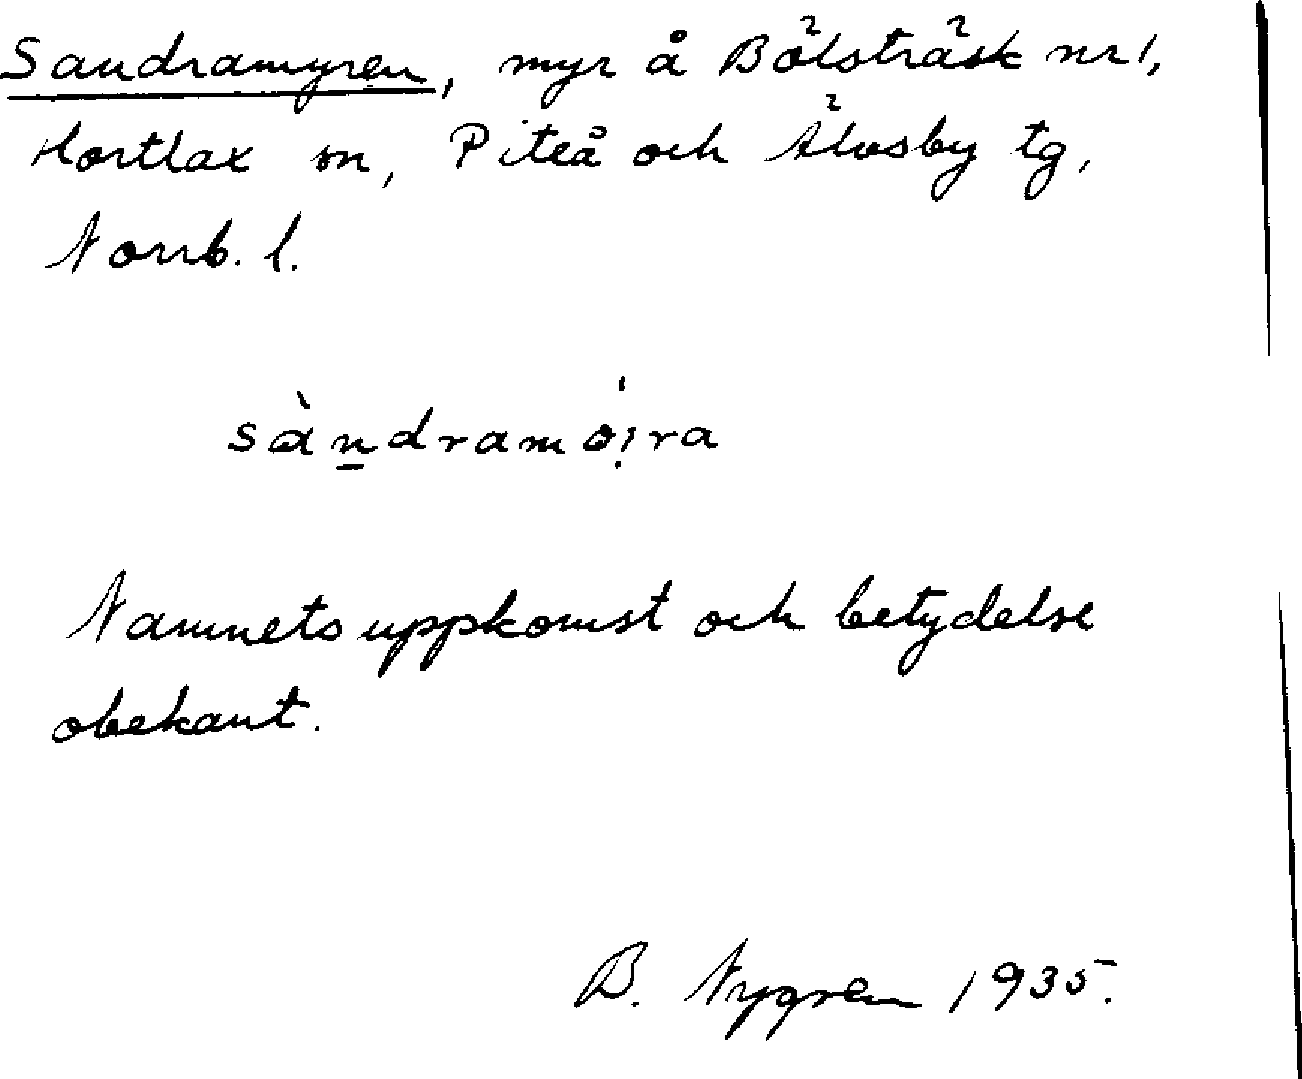 Sandramyren, myr å Bölsträsk nr 1,
Hortlax sn, Piteå och Älvsby tg,
Norrb. l.
sàndramóira
Namnets uppkomst och betydelse
obekant.
B. Nygren 1935.